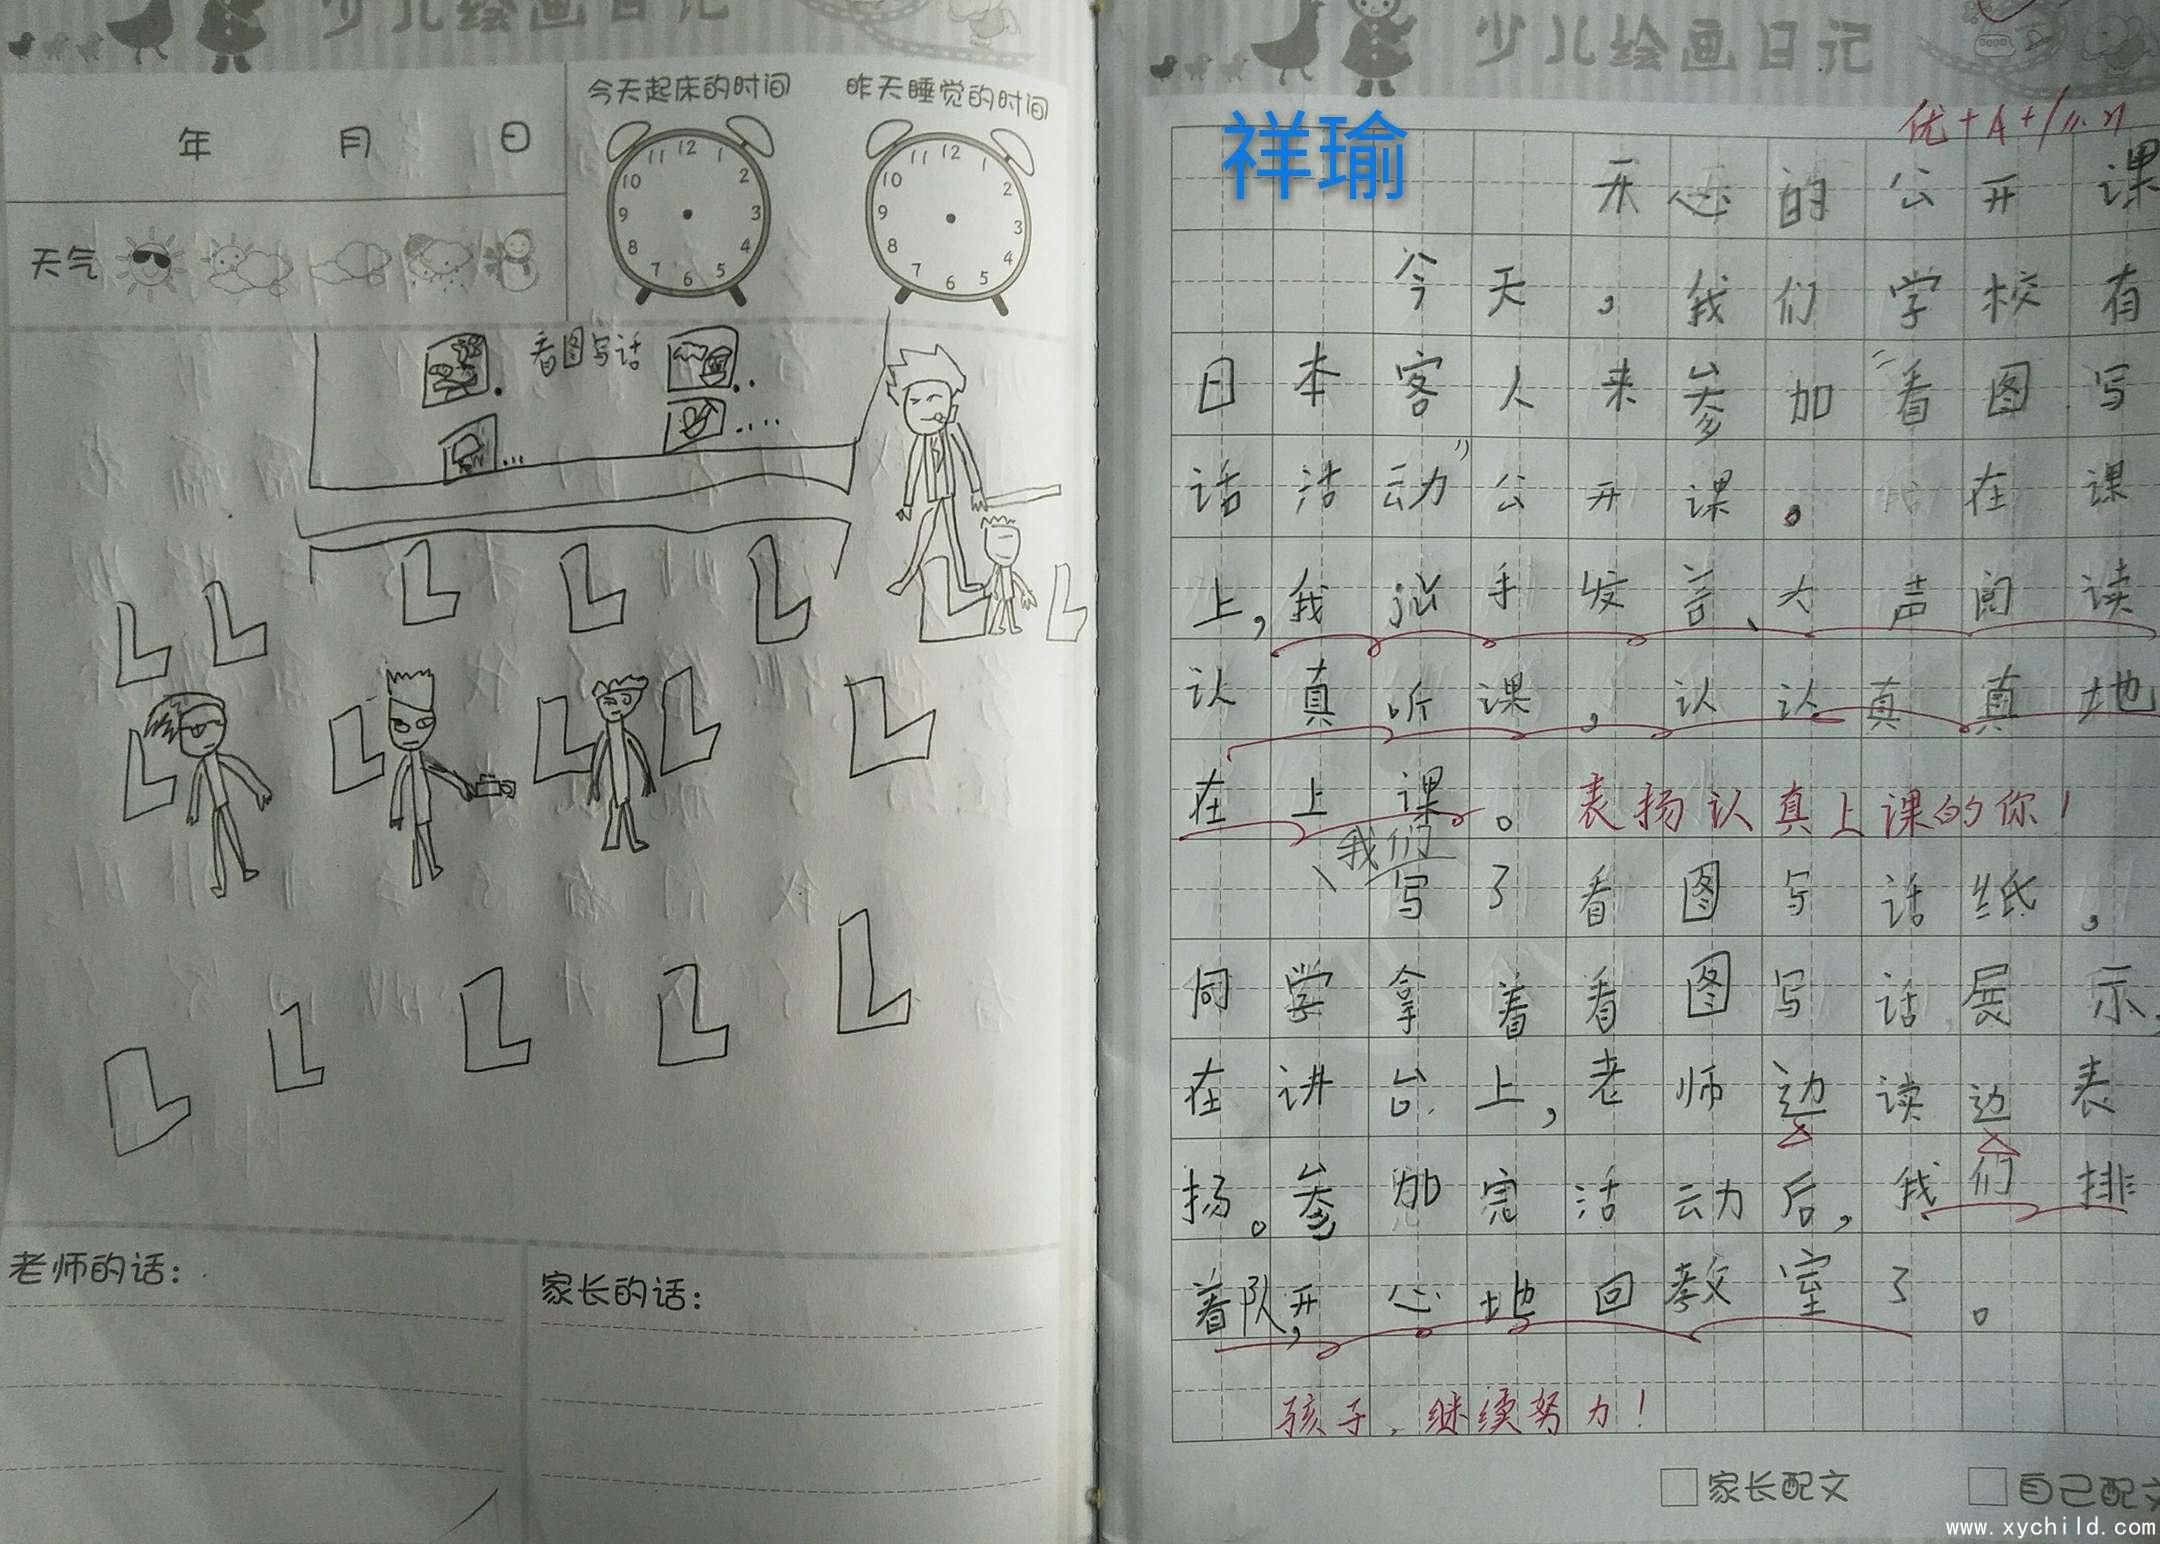 少儿绘画日记
年 月 日
今天起床的时间
昨天睡觉的时间
12 1 2 3 4 5 6 7 8 9 10 11
12 1 2 3 4 5 6 7 8 9 10 11
天气
看图写话
老师的话：
家长的话：
少儿绘画日记
优+A+
祥瑜
开心的公开课
今天，我们学校有
日本客人来参加“看图写
话活动”公开课。在课
上，我举手发言、大声阅读
认真听课，认认真真地
在上课。
表扬认真上课的你！
我们
写了看图写话纸，
同学拿着看图写话展示，
在讲台上，老师边读边表
扬。参加完活动后，我们排
着队，开心地回教室了。
孩子，继续努力！
家长配文
自己配文
www.xychild.com